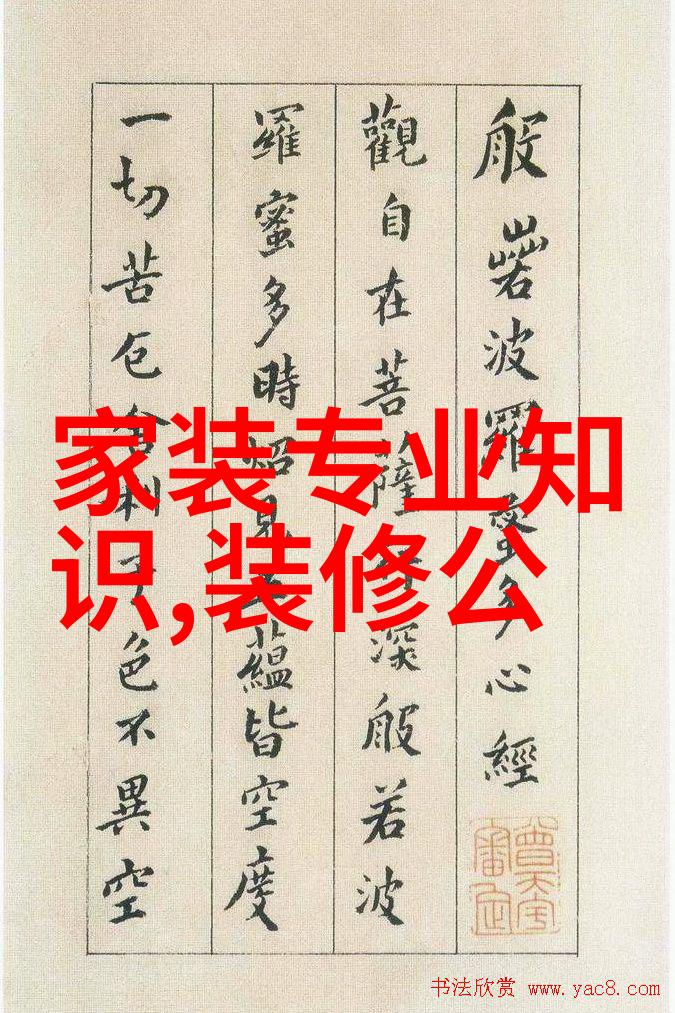 般若波羅蜜多心經
觀自在菩薩行深般若波
羅蜜多時照見五蘊皆空度
一切苦厄舍利子色不異空
家装专业知
识,装修公
书法欣赏 www.yac8.com